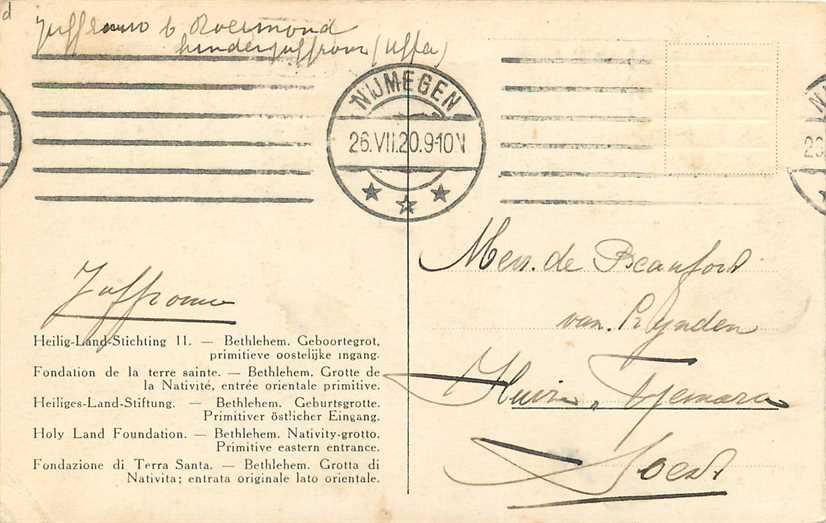 d
Juffrouw b Roermond
kinderjuffrouw (Uffa)
NIJMEGEN
26.VII.20.9-10N
Juffrouw
Heilig-Land-Stichting 11. — Bethlehem. Geboortegrot,
primitieve oostelijke ingang.
Fondation de la terre sainte. — Bethlehem. Grotte de
la Nativité, entrée orientale primitive.
Heiliges-Land-Stiftung. — Bethlehem. Geburtsgrotte.
Primitiver östlicher Eingang.
Holy Land Foundation. — Bethlehem. Nativity-grotto.
Primitive eastern entrance.
Fondazione di Terra Santa. — Bethlehem. Grotta di
Nativita; entrata originale lato orientale.
Mevr. de Beaufort
van Rijnden
Huize
Soest